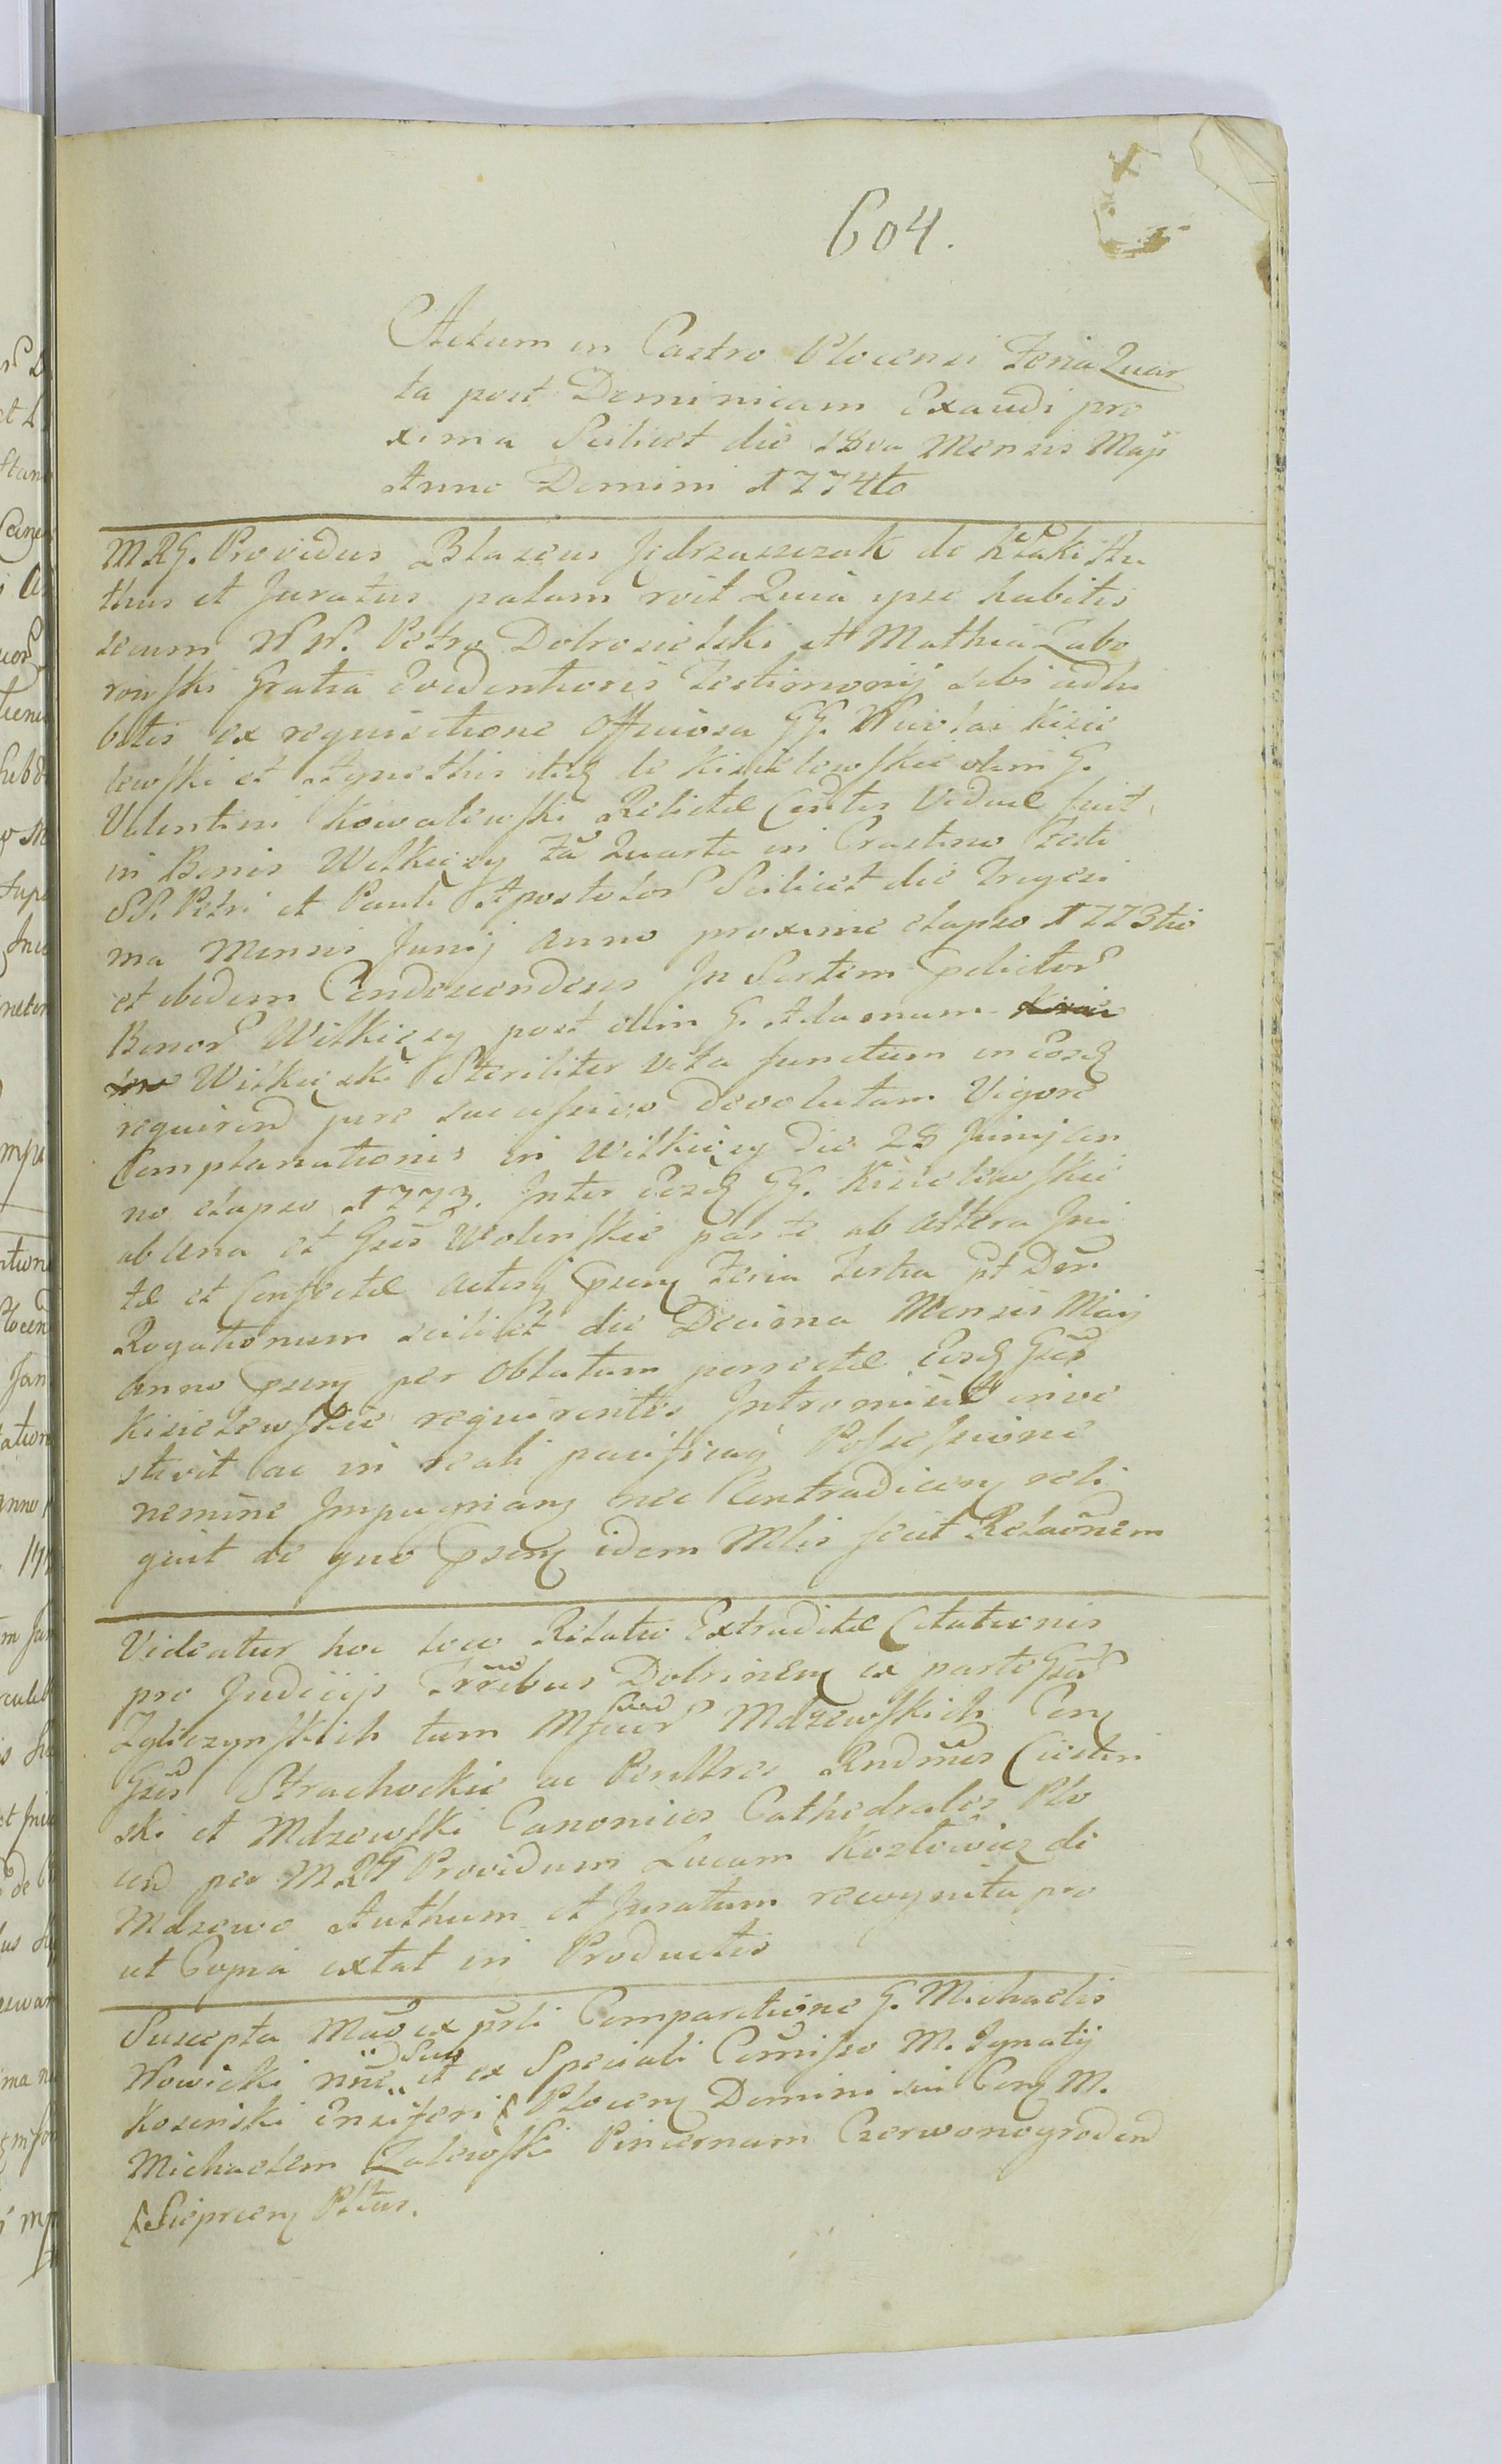 604.
Actum in Castro Plocensi Feria Quar
ta post Dominicam Exaudi pro
xima Scilicet die 18va Mensis Maji
Anno Domini 1774to
MRG. Providus Blasius Jędrzaszczak de Kłaki Au
thus et Juratus palam roit Quia ipse habitis
secum NN. Petro Dobrosielski et Mathia Zabo
rowski Gratia Evidentioris Testimonij sibi adhi
bitis ex requisitione Officiosa GG. Nicolai Kisie
lewski et Agnethis itidę de Kisielewskie olim G.
Valentini Kowalewski Relictæ Coniūtis Viduæ fuit
in Bonis Wilkięzy Fā Quarta in Crastino Festi
SS. Petri et Pauli Apostolor Scilicet die Trigesi
ma Mensis Junij anno proxime elapso 1773tio
et ibidem Condescendens In Sortem pdictor
Bonor Wilkięzy post olim G. Adamum
Wilkięski Steriliter vita functum in Eosdę
requirend jure successivo devolutam Vigore
Complanationis in Wilkięzy die 28 Junij an
no elapso 1773. Inter Eosdę GG. Kisielewskie
ab una et Gsos Wolinskie parte ab altera Ini
tæ et Confectæ actisq psenę Feria Tertia pt Dom
Rogationum scilicet die Decima Mensis Maij
anno psenę per Oblatam porrectæ Eosdę Gsos
Kisielewskie requirentes Intromisit inve
stivit ac in reali pacificaq Possessione
nemine Impugnanę nec Contradicenę reli
quit de quo psenę idem Mlis fecit Relaōnem
Videatur hoc loco Relatio Extraditæ Citationis
pro Judicijs Trribus Dobrinenę ex parte Gsor
Zgliczynskich tum Mfcor Mdzewskich Conę
Gsos Strachockie ac Perillres Rndmos Ciecier
ski et Mdzewski Canonicos Cathedrales Plo
cen per MRG Providum Lucam Kozłowicz de
Mdzewo Authum et Juratum recognita pro
ut Copia extat in Productis
Suscepta Mao ex prli Comparitione G. Michaelis
Nowicki nne suo et ex Speciali Comisso M. Ignatij
Kosinski Ensiferi Plocenę Domini sui Conę M.
Michaelem Zalewski Pincernam Czerwonogroden
Sieprcenę Pltus.